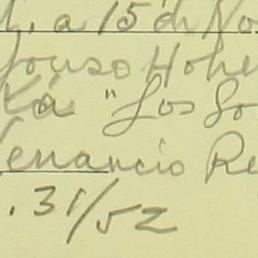 a 15 de No
fonso Hohe
"Los Go
Venancio Re
. 31/52